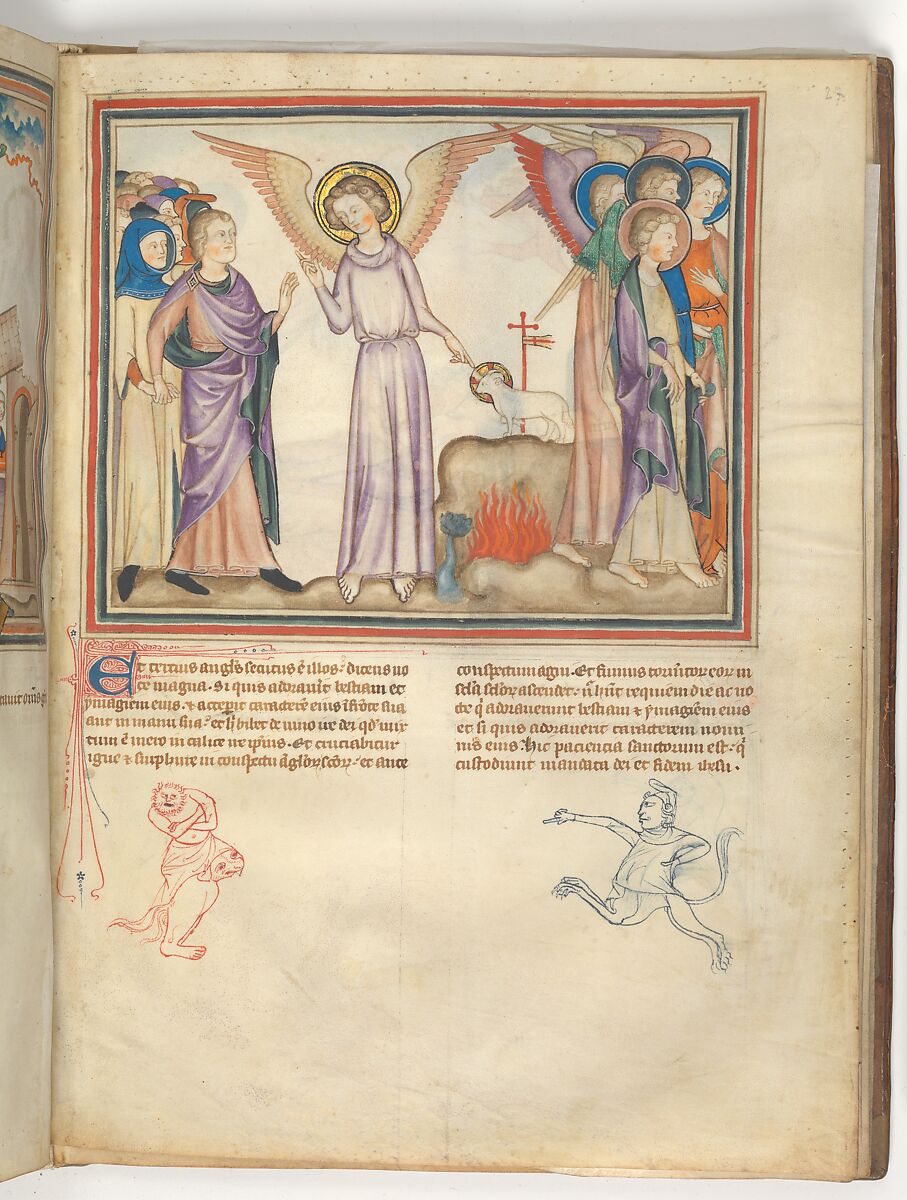 27
Et tercius angl's secutus ē illos: dicens uo
ce magna. Si quis adorauit bestiam et
ymaginem eius. & accepit caracterē eius ī frōte sua
aut in manu sua: et bibet de uino ire dei qd' mix
tum ē mero in calice ire ipsius. Et cruciabitur
igne & sulphure in conspectu āglor scōr: et ante
conspectum agni. Et fumus tormētor eor in
sc'la sc'lor ascendet: n̄ hn̄t requiem die ac no
cte q̄ adorauerunt bestiam & ymaginem eius
et si quis adorauerit caracterem nomi
nis eius. Hic paciencia sanctorum est: q̄
custodiunt mandata dei et fidem ihesu.